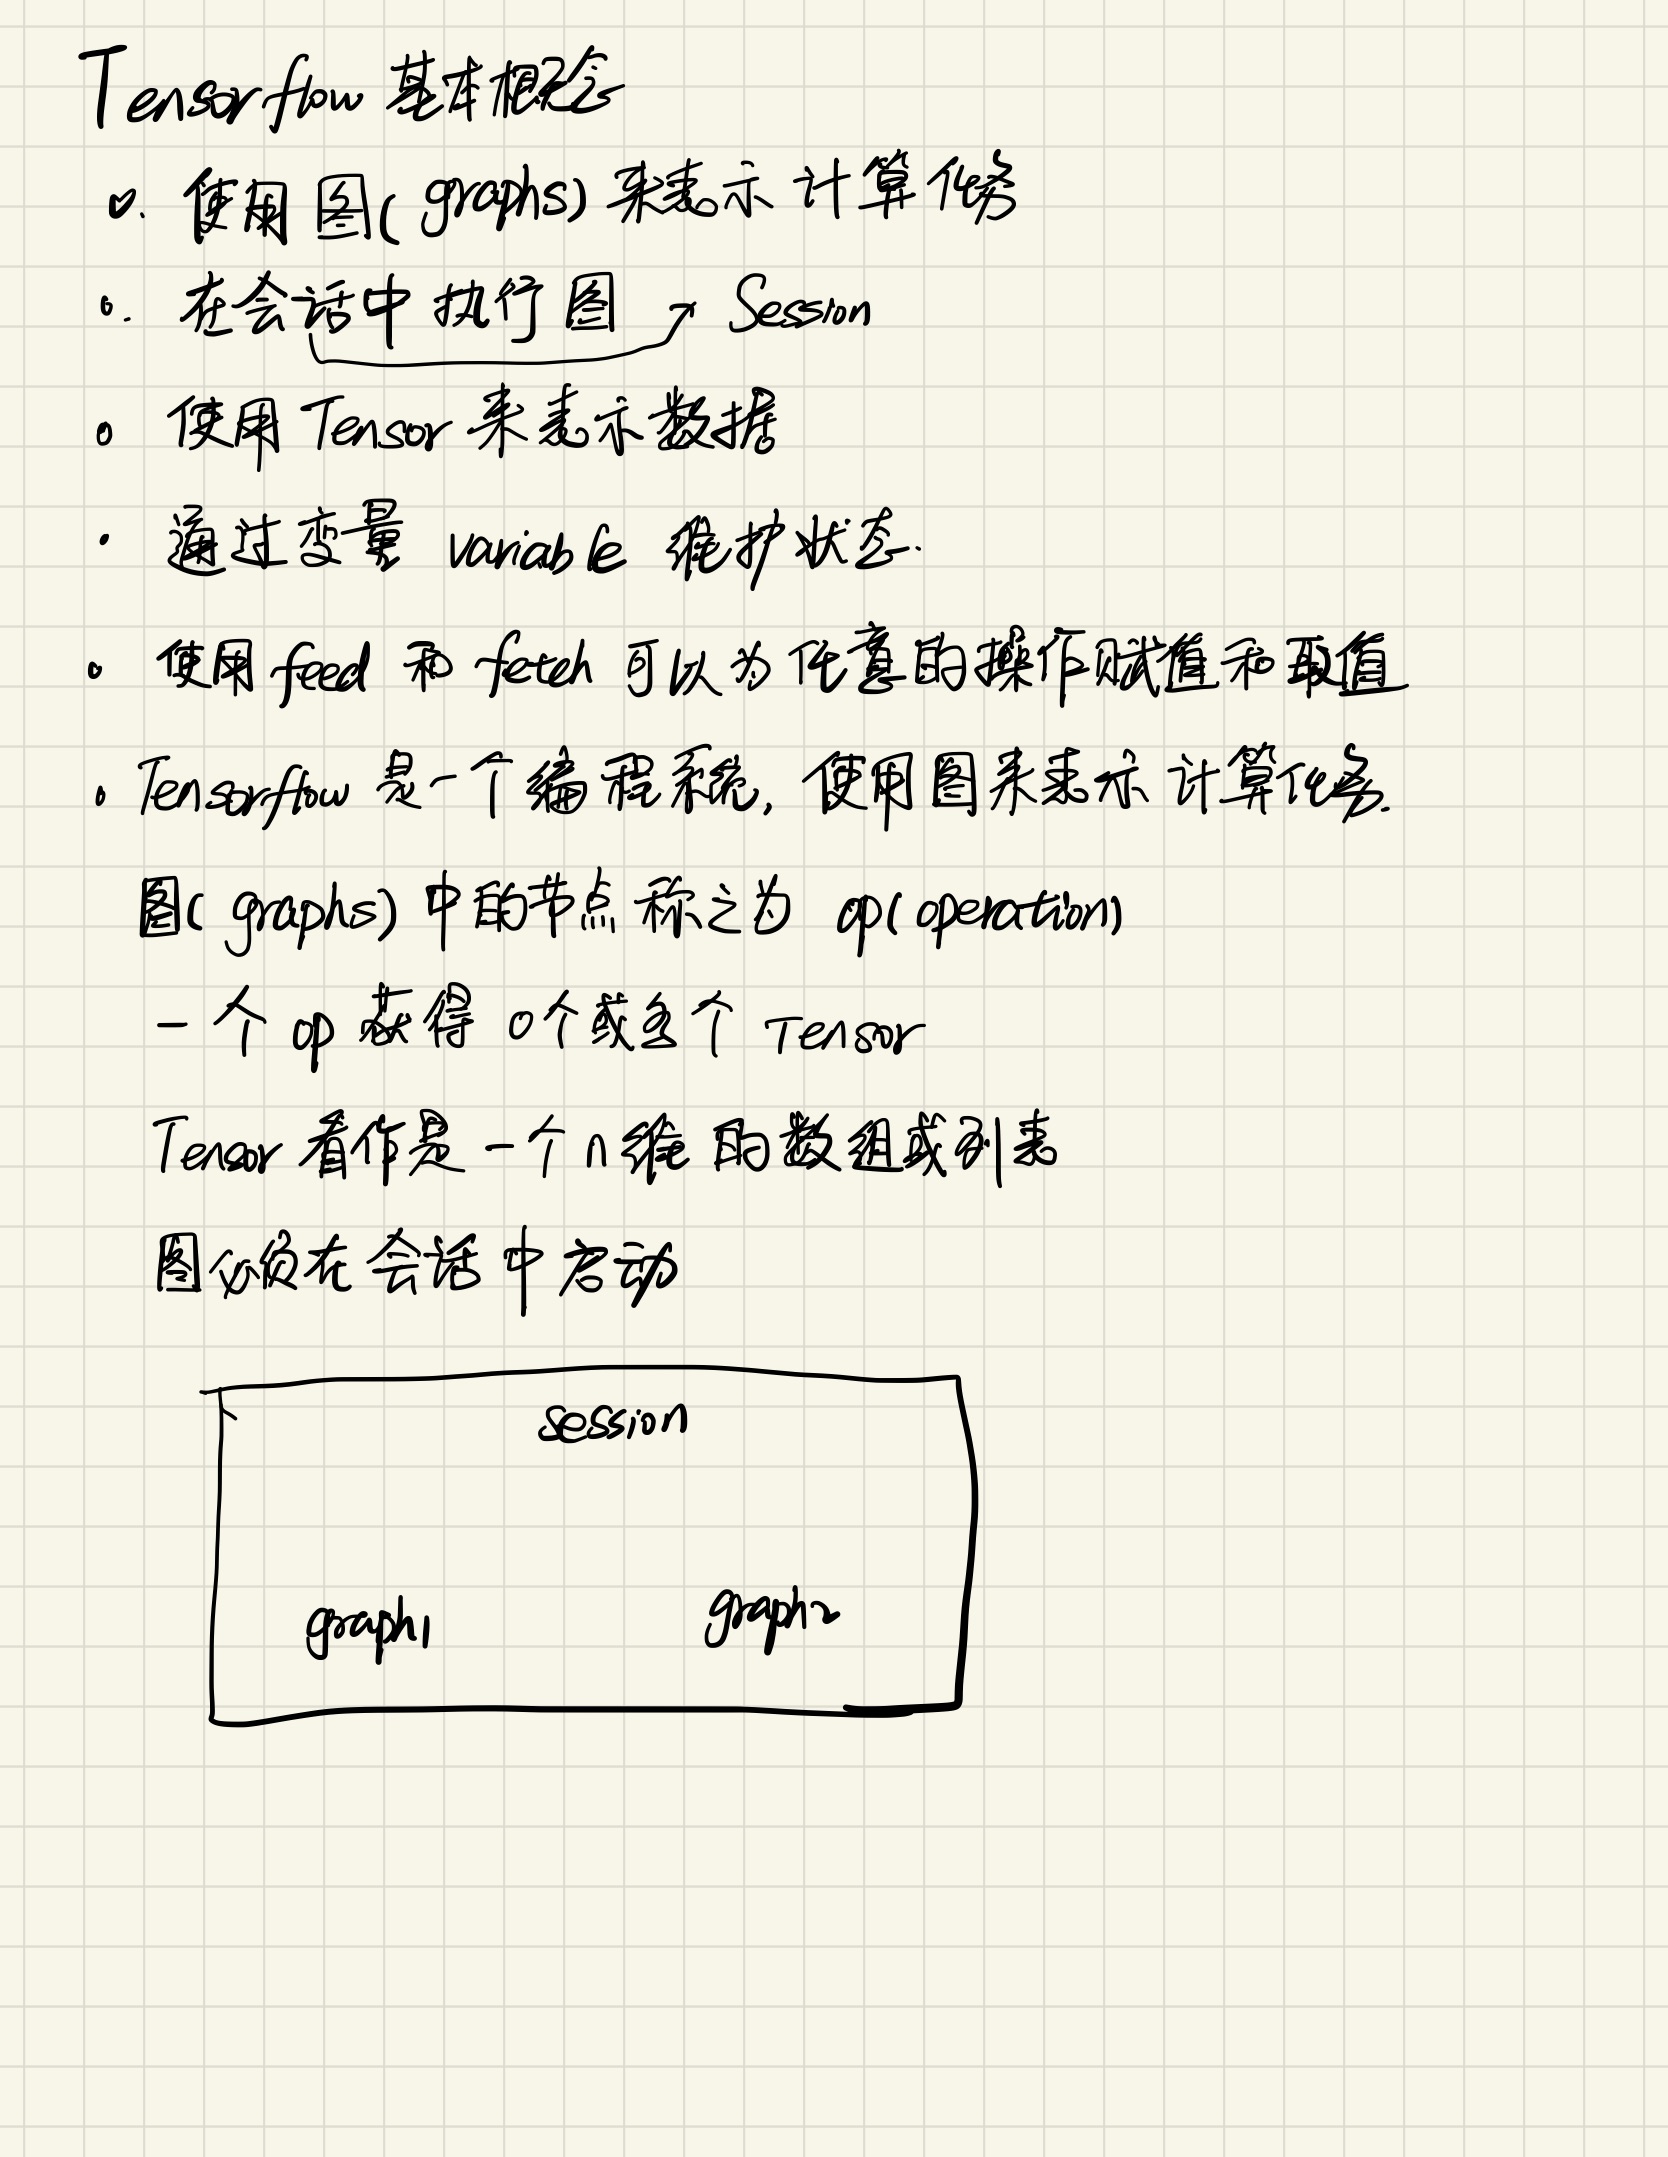 Tensorflow 基本概念
使用图(graphs)来表示计算任务
在会话中执行图 Session
使用Tensor来表示数据
通过变量 variable 维护状态.
使用feed 和 fetch 可以为任意的操作赋值和取值
Tensorflow 是一个编程系统, 使用图来表示计算任务.
图(graphs)中的节点称之为 op(operation)
一个 op 获得 0个或多个 Tensor
Tensor 看作是一个n维的数组或列表
图必须在会话中启动
session
graph1 graph2